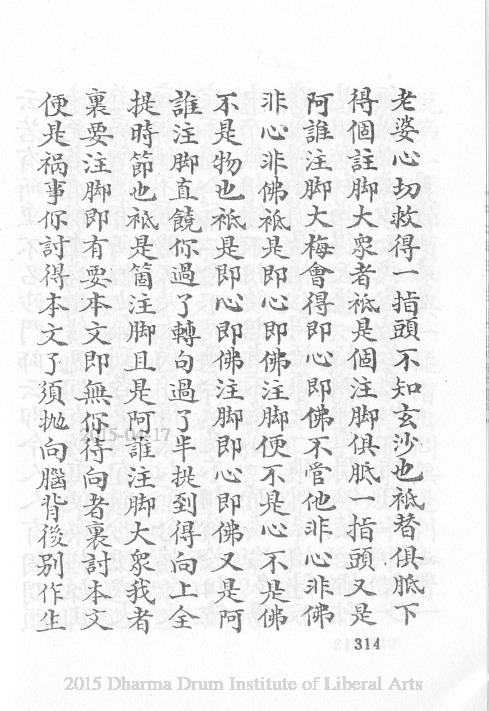 老婆心切救得一指頭不知玄沙也袛替俱胝下
得個註脚大衆者袛是個注脚俱胝一指頭又是
阿誰注脚大梅會得即心即佛不管他非心非佛
非心非佛袛是即心即佛注脚便不是心不是佛
不是物也袛是即心即佛注脚即心即佛又是阿
誰注脚直饒你過了轉句過了半提到得向上全
提時節也袛是箇注脚且是阿誰注脚大衆我者
裏要注脚即有要本文即無你待向者裏討本文
便是禍事你討得本文了須拋向腦背後別作生
314
2015 Dharma Drum Institute of Liberal Arts